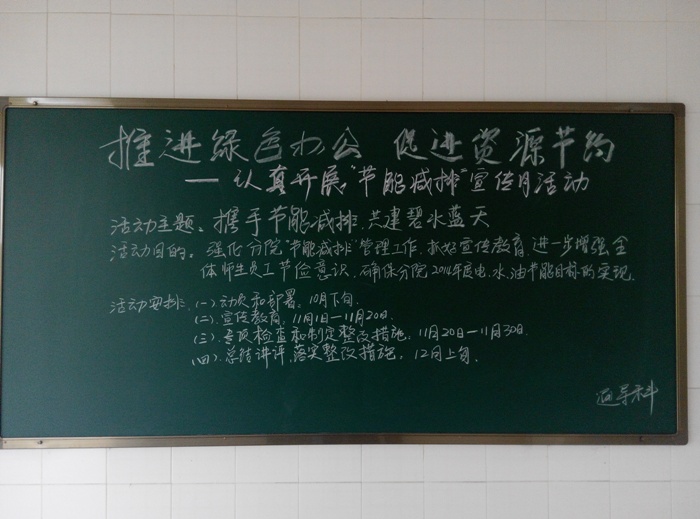 推进绿色办公 促进资源节约
——认真开展"节能减排"宣传月活动
活动主题:携手节能减排,共建碧水蓝天
活动目的:强化分院"节能减排"管理工作,抓好宣传教育,进一步增强全
体师生员工节俭意识,确保分院2014年度电、水、油节能目标的实现.
活动安排:(一)动员和部署:10月下旬.
(二).宣传教育:11月1日—11月20日.
(三).专项检查和制定整改措施:11月20日—11月30日.
(四).总结讲评,落实整改措施:12月上旬.
科